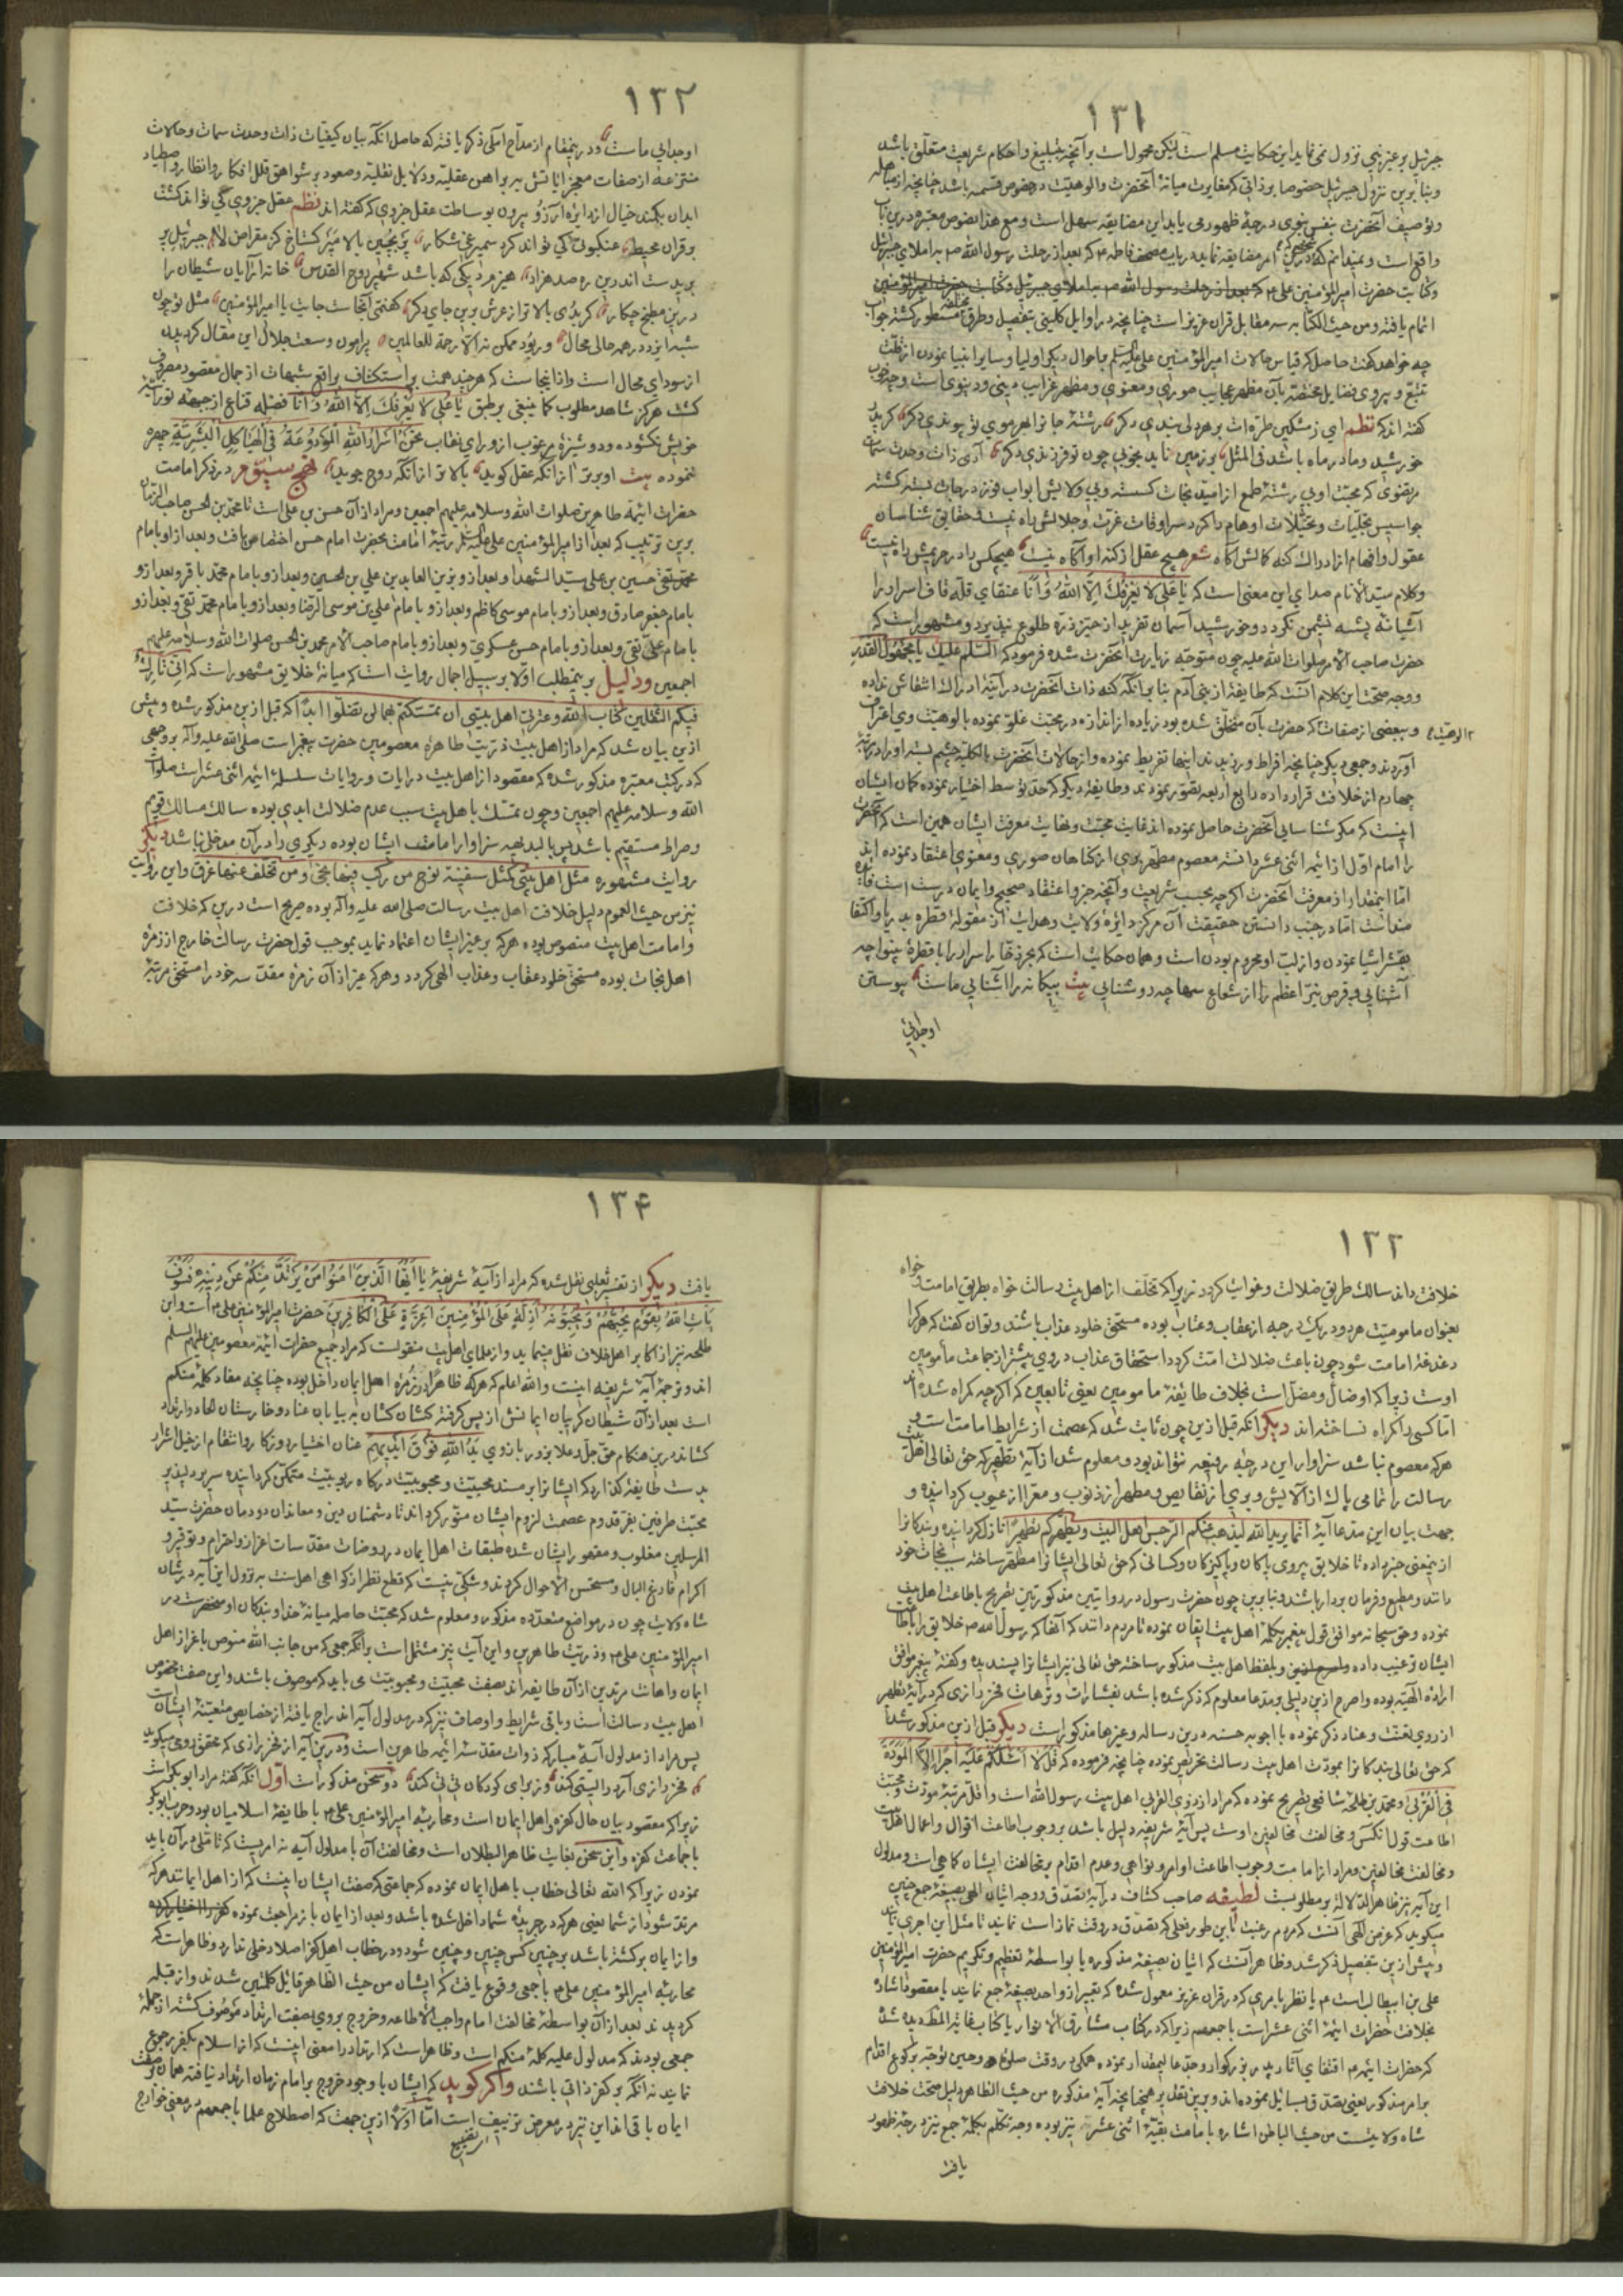 ١٣١
جبرئیل بر غیر نبی نزول نمی نماید این حکایت مسلم است لیکن محمول است بر آنچه بتبلیغ و احکام شریعت متعلق باشد
و بنابرین نزول جبرئیل خصوصا بر ذاتی که مغایرت میانهٔ آنحضرت والوهیت در خصوص قسمه باشد چنانچه از مباهله
و توصیف آنحضرت بنفس نبوی درجهٔ ظهور می یابد این مضایقه سهل است و مع هذا نصوص معتبره درین باب
واقع است و نمیدانم که درین امر مضایقه نماید در باب مصحف فاطمه ع که بعد از رحلت رسول الله ص به املای جبرئیل
و کتابت حضرت امیرالمؤمنین علی ع
اتمام یافته و من حیث الکتابه سه مقابل قران عزیز است چنانچه در اوایل کلینی بتفصیل و طرق مختلفه مسطور گشته جواب
چه خواهد گفت حاصل که قیاس حالات امیرالمؤمنین علی علیه السلم باحوال دیگر اولیا و سایر انبیا نمودن از قلت
تتبع و پیروی فضایل مختصهٔ بآن مظهر عجایب صوری و معنوی و مظهر غرایب دینی و دنیوی است
گفته اند که نظم ای ز مشکین طره ات بر هر دلی بندی دگر رشتهٔ جانرا بهر موی تو پیوندی دگر گر بود
خورشید و مادر ماه باشد فی المثل بر زمین ناید بخوبی چون تو فرزندی دگر آری ذات وحدت سمات
مرتضوی که محبت او بی رشتهٔ طمع از امید نجات گسسته و بی ولایش ابواب فوز درجات بسته گشته
جواسیس تخیلات و تخیلات اوهام را گرد سرادقات عزت و جلالش راه نیست و حقایق شناسان
عقول و افهام از ادراک کنه کمالش آگاه شعر هیچ عقل از کنه او آگاه نیست هیچکس را در حریمش راه نیست
و کلام سید الأنام صدای این معنی است که یا علی لا یعرفک الا الله و انا عنقای قلهٔ قاف اسرار را
آشیانهٔ پشه نشیمن نگردد و خورشید آسمان تفرید از حیز ذره طلوع نپذیرد و مشهور است که
حضرت صاحب الأمر صلوات الله علیه چون متوجه زیارت آنحضرت شده فرمود که السلم علیک یا مجهول القدر
و وجه صحت این کلام آنست که طایفهٔ از بنی آدم بنا بر آنکه کنه ذات آنحضرت در آینهٔ ادراک انتقاش نداده
و ببعضی از صفات که حضرت بآن متخلق شده بود زیاده از اندازه در محبت غلو نموده بالوهیت وی اعتراف
آوردند و جمعی دیگر چنانچه افراط ورزیدند اینها تفریط نموده و از حالات آنحضرت بالکلیه چشم بسته او را در مرتبهٔ
چهارم از خلافت قرار داده رابع اربعه تصور نمودند و طایفهٔ دیگر که حد توسط اختیار نموده گمان ایشان
اینست که مگر شناسایی آنحضرت حاصل نموده اند غایت محبت و نهایت معرفت ایشان همین است که آنحضرت
را امام اول از ائمه اثنی عشر دانسته معصوم مطهر بری از گناهان صوری و معنوی اعتقاد نموده اند
اما اینمقدار از معرفت آنحضرت اگرچه بحسب شریعت و آنچه جزو اعتقاد صحیح و ایمان درست است
اما در جنب دانستن حقیقت آن مرکز دایرهٔ ولایت و هدایت از مقولهٔ قطره بدریا و اکتفا
بقشر اشیا نمودن و از لب او محروم بودن است و همان حکایت است که بحر ذخار اسرار را با قطرهٔ بینوا چه
آشنایی و قرص نیر اعظم را از شعاع سها چه روشنایی بیت بیگانه را آشنایی ماست پیوستن
او جدایی
١٣٢
او جدایی ماست و در ینمقام از مداح املی ذکر یافته که حاصل آنکه بیان کیفیات ذات وحدت سمات و حالات
منتزعه از صفات معجز ایاتش به براهین عقلیه و دلایل نقلیه و صعود بر شواهق قلل افکار و انظار و اصطیاد
ابدان بکمند خیال از دایرهٔ آرزو بیرون بوساطت عقل جزوی که گفته اند نظم عقل جزوی کی تواند گشت
بر قران محیط عنکبوتی کی تواند کرد سیمرغی شکار
برید است اندرین ره صد هزار هیزم دیگی که باشد شهپر روح القدس خانه آرایان شیطان را
درین مطبخ چکار گر بدی بالاتر از عرش برین جای دگر گفتمی آنجاست جایت یا امیرالمؤمنین مثل تو چون
شبه ایزد در همه حالی محال ور بود ممکن نه الا رحمة للعالمین پیرامون وسعت جلال این مقال گردیدن
از سودای محال است و از اینجاست که هر چند همت بر استکشاف براقع شبهات از جمال مقصود مصروف
گشت هرگز شاهد مطلوب کما ینبغی بر طبق یا علی لا یعرفک الا الله و انا فضله قناع از جبههٔ نورانیه
خویش نگشوده و دوشیزهٔ مرغوب از ورای نقاب نحن اسرار الله المودوعة فی الهیاکل البشریة چهره
ننموده بیت او برتر از آنکه عقل گوید بالاتر از آنکه روح جوید نهج سیّوم در ذکر امامت
حضرات ائمهٔ طاهرین صلوات الله وسلامه علیهم اجمعین و مراد از آن حسن بن علی است تا محمد بن الحسن صاحب الزمان
برین ترتیب که بعد از امیرالمؤمنین علی علیه السلم رتبهٔ امامت بحضرت امام حسن اختصاص یافت و بعد از او بامام
محمد تقی حسین بن علی سید الشهدا و بعد از و بزین العابدین علی بن الحسین و بعد از و بامام محمد باقر و بعد از و
بامام جعفر صادق و بعد از و بامام موسی کاظم و بعد از و بامام علی بن موسی الرضا و بعد از و بامام محمد تقی و بعد از و
بامام علی نقی و بعد از و بامام حسن عسکری و بعد از و بامام صاحب الأمر محمد بن الحسن صلوات الله وسلامه علیهم
اجمعین و دلیل بر ینمطلب اولا بر سبیل اجمال روایت است که میانهٔ خلایق مشهور است که انی تارک
فیکم الثقلین کتاب الله و عترتی اهل بیتی ان تمسکتم بهما لن تضلوا ابدا که قبل ازین مذکور شده و پیش
ازین بیان شد که مراد از اهل بیت ذریت طاهرهٔ معصومین حضرت پیغمبر است صلی الله علیه وآله بر وجهی
که در کتب معتبره مذکور شده که مقصود از اهل بیت در ایات و روایات سلسلهٔ ایمهٔ اثنی عشر است صلوات
الله و سلامه علیهم اجمعین و چون تمسک باهل بیت سبب عدم ضلالت ابدی بوده سالک مسالک قویم
و صراط مستقیم باشد پس بالبدیهه سزاوار امامت ایشان بوده دیگری را در آن مدخلی نباشد دیگر
روایت مشهوره مثل اهل بیتی کمثل سفینة نوح من رکب فیها نجی و من تخلف عنها غرق و این روایت
نیز من حیث العموم دلیل خلافت اهل بیت رسالت صلی الله علیه وآله بوده صریح است درین که خلافت
و امامت اهل بیت منصوص بوده هر که بر غیر ایشان اعتماد نماید بموجب قول حضرت رسالت خارج از زمرهٔ
اهل نجات بوده مستحق خلود عقاب و عذاب الهی گردد و هر که غیر از آن زمرهٔ مقدسه خود را مستحق مرتبهٔ
١٣٣
خلافت داند سالک طریق ضلالت و غوایت گردد زیرا که تخلف از اهل بیت رسالت خواه بطریق امامت و خواه
بعنوان مامومیت هر دو در یک درجه از عقاب و عتاب بوده مستحق خلود عذاب باشند و توان گفت که هر کرا
دغدغهٔ امامت شود چون باعث ضلالت امت گردد استحقاق عذاب در وی پیشتر از جماعت مأمومین
اوست زیرا که او ضال و مضل است بخلاف طایفهٔ مامومین یعنی تابعین که اگرچه گمراه شده اند
اما کسی را گمراه نساخته اند دیگر آنکه قبل ازین چون ثابت شد که عصمت از شرایط امامت است
هر که معصوم نباشد سزاوار این درجهٔ رفیعه نتواند بود و معلوم شد از آیهٔ تطهیر که حق تعالی اهل بیت
رسالت را تمامی پاک از آلایش و بری از نقایص و مطهر از ذنوب و معرا از عیوب گردانیده و
جهت بیان این مدعا آیهٔ انما یرید الله لیذهب عنکم الرجس اهل البیت ویطهرکم تطهیرا نازل گردانیده و بندگانرا
از ینمعنی خبر داده تا خلایق پیروی پاکان و پاکیزگان و کسانی که حق تعالی ایشانرا مطهر ساخته سبب نجات خود
دانند و مطیع و فرمان بردار باشند و بنا برین چون حضرت رسول در روایتین مذکورتین تصریح باطاعت اهل بیت
نموده و حق سبحانه موافق قول پیغمبر بکلمهٔ اهل بیت ایقان نموده تا مردم دانند که آنها که رسول الله ص خلایق را باطاعت
ایشان ترغیب داده و بلفظ اهل بیت مذکور ساخته حق تعالی نیز ایشانرا پسندیده و گفتهٔ پیغمبر موافق
ارادهٔ الهیه بوده و اصرح ازین دلیلی و مدعا معلوم که ذکر شده باشد بفشارات و ترهات فخر رازی که در آیهٔ تطهیر
از روی تعنت و عناد ذکر نموده با اجوبهٔ حسنه درین رساله و غیرها مذکور است دیگر قبل ازین مذکور شد
که حق تعالی بندگانرا بمودت اهل بیت رسالت تحریص نموده چنانچه فرموده که قل لا اسئلکم علیه اجرا الا المودة
فی القربی و محمد بن طلحهٔ شافعی تصریح نموده که مراد از ذوی القربی اهل بیت رسول الله است و اقل مرتبهٔ مودت و محبت
اطاعت قول انکس و مخالفت مخالفین اوست پس آیهٔ شریفه دلیل باشد بر وجوب اطاعت اقوال و اعمال اهل بیت
و مخالفت مخالفین و مراد از امامت وجوب اطاعت اوامر و نواهی و عدم اقدام بر مخالفت ایشان کما هی است و مدلول
این آیه نیز ظاهر الدلاله بر مطلوبست لطیفه صاحب کشاف در آیهٔ تصدق و وجه اتیان الهی بصیغهٔ جمع چنین
میگوید که غرض الهی آنست که مردم رغبت باین طور فعلی که تصدق در وقت نماز است نمایند تا مثل این اجری یابند
و پیش ازین بتفصیل ذکر شد و ظاهر آنست که اتیان بصیغهٔ مذکوره یا بواسطهٔ تعظیم و تکریم حضرت امیرالمؤمنین
علی بن ابیطالب است ع یا نظر بامری که در قران عزیز معمول شده که تعبیر از واحد بصیغهٔ جمع نمایند یا مقصود اشاره
بخلافت حضرات ایمهٔ اثنی عشر است باجمعهم زیرا که در کتاب مشارق الأنوار یا کتاب غایة المطلب دیده شد
که حضرات ایمه ع اقتفای آثار پدر بزرگوار و جد عالیمقدار نموده همگی در وقت صلوة و حین توجه برکوع اقدام
بر امر مذکور یعنی تصدق بسائل نموده اند و برین تقدیر همچنانچه آیهٔ مذکوره من حیث الظاهر دلیل صحت خلافت
شاه ولایتست من حیث الباطن اشاره بامامت بقیهٔ اثنی عشر نیز بوده وجه تکلم بکلمهٔ جمع نیز درجهٔ ظهور
یافت
١٣۴
یافت دیگر از تفسیر ثعلبی نقل شده که مراد از آیهٔ شریفهٔ یا ایها الذین امنوا من یرتد منکم عن دینه فسوف
یات الله بقوم یحبهم و یحبونه اذلة علی المؤمنین اعزة علی الکافرین حضرت امیرالمؤمنین علی ع است و ابن
طلحه نیز از اکابر اهل خلاف نقل مینماید و از علمای اهل بیت منقولست که مراد جمیع حضرات ایمهٔ معصومین علیهم السلم
اند و ترجمهٔ آیهٔ شریفه اینست والله اعلم که هر که ظاهرا در زمرهٔ اهل ایمان داخل بوده چنانچه مفاد کلمهٔ منکم
است بعد از آن شیطان گریبان ایمانش از پس گرفته کشان کشان به بیابان عناد و خارستان الحاد و ارتداد
کشاند درین هنگام حق جل و علا بزور بازوی یدالله فوق ایدیهم عنان اختیار و زکار و انتقام از خیل اشرار
بدست طایفهٔ گذارد که ایشانرا بر مسند محبیت و محبوبیت درگاه ربوبیت متمکن گردانیده سریر دلپذیر
محبت طرفین بفر قدوم عصمت لزوم ایشان منور گرداند تا دشمنان دین و معاندان دودمان حضرت سید
المرسلین مغلوب و مقهور ایشان شده طبقات اهل ایمان در روضات مقدسات اعزاز و احترام و توقیر و
اکرام فارغ البال و مستحسن الأحوال گردند و شکی نیست که قطع نظر از گواهی اهل سنت به نزول این آیه در شان
شاه ولایت چون در مواضع متعدده مذکور و معلوم شد که محبت حاصله میانهٔ خدا و بندگان او منحصر است در
امیرالمؤمنین علی ع و ذریت طاهرین و این آیت نیز مشتمل است بر آنکه جمعی که من جانب الله منصوص باعزاز اهل
ایمان و اهانت مرتدین از آن طایفه اند بصفت محبیت و محبوبیت می باید که موصوف باشند و این صفت مخصوص
اهل بیت رسالت است و باقی شرایط و اوصاف نیز که در مدلول آیه اندراج یافته از خصایص متعینهٔ ایشانست
پس مراد از مدلول آیهٔ مبارکه ذوات مقدسهٔ ائمهٔ طاهرین است و درین آیه از فخر رازی که محقق رومی میگوید
دو سخن مذکور است اول آنکه گفته مراد ابوبکر است
زیرا که مقصود بیان حال کفره و اهل ایمان است و محاربهٔ امیرالمؤمنین علی ع با طایفهٔ اسلامیان بود و حرب ابوبکر
با جماعت کفره و این سخن بغایت ظاهر البطلان است و مخالفت آن با مدلول آیه نه امریست که تاملی در آن باید
نمودن زیرا که الله تعالی خطاب باهل ایمان نموده که جماعتی که صفت ایشان اینست که از اهل ایمانند هر که
مرتد شود از شما یعنی هر که در جریدهٔ شما داخل شده باشد و بعد از ایمان باز مراجعت نموده
و از ایمان برگشته باشد بر چنین کس چنین و چنین شود و در خطاب اهل کفر اصلا دخلی ندارد و ظاهر است که
محاربهٔ امیرالمؤمنین علی ع با جمعی وقوع یافت که ایشان من حیث الظاهر قایل کلمتین شدند و از قبله
گردیدند بعد از آن بواسطهٔ مخالفت امام واجب الأطاعه و خروج بر وی بصفت ارتداد موصوف گشته از جملهٔ
جمعی بودند که مدلول علیه کلمهٔ منکم است و ظاهر است که ارتداد را معنی اینست که از اسلام بکفر رجوع
نمایند نه آنکه بر کفر ذاتی باشند و اگر گوید که ایشان با وجود خروج بر امام زمان ارتداد نیافته همان بصفت
ایمان باقی اند این نیز در معرض تزییف است اما اولا ازین جهت که اصطلاح علما باجمعهم در معنی خوارج